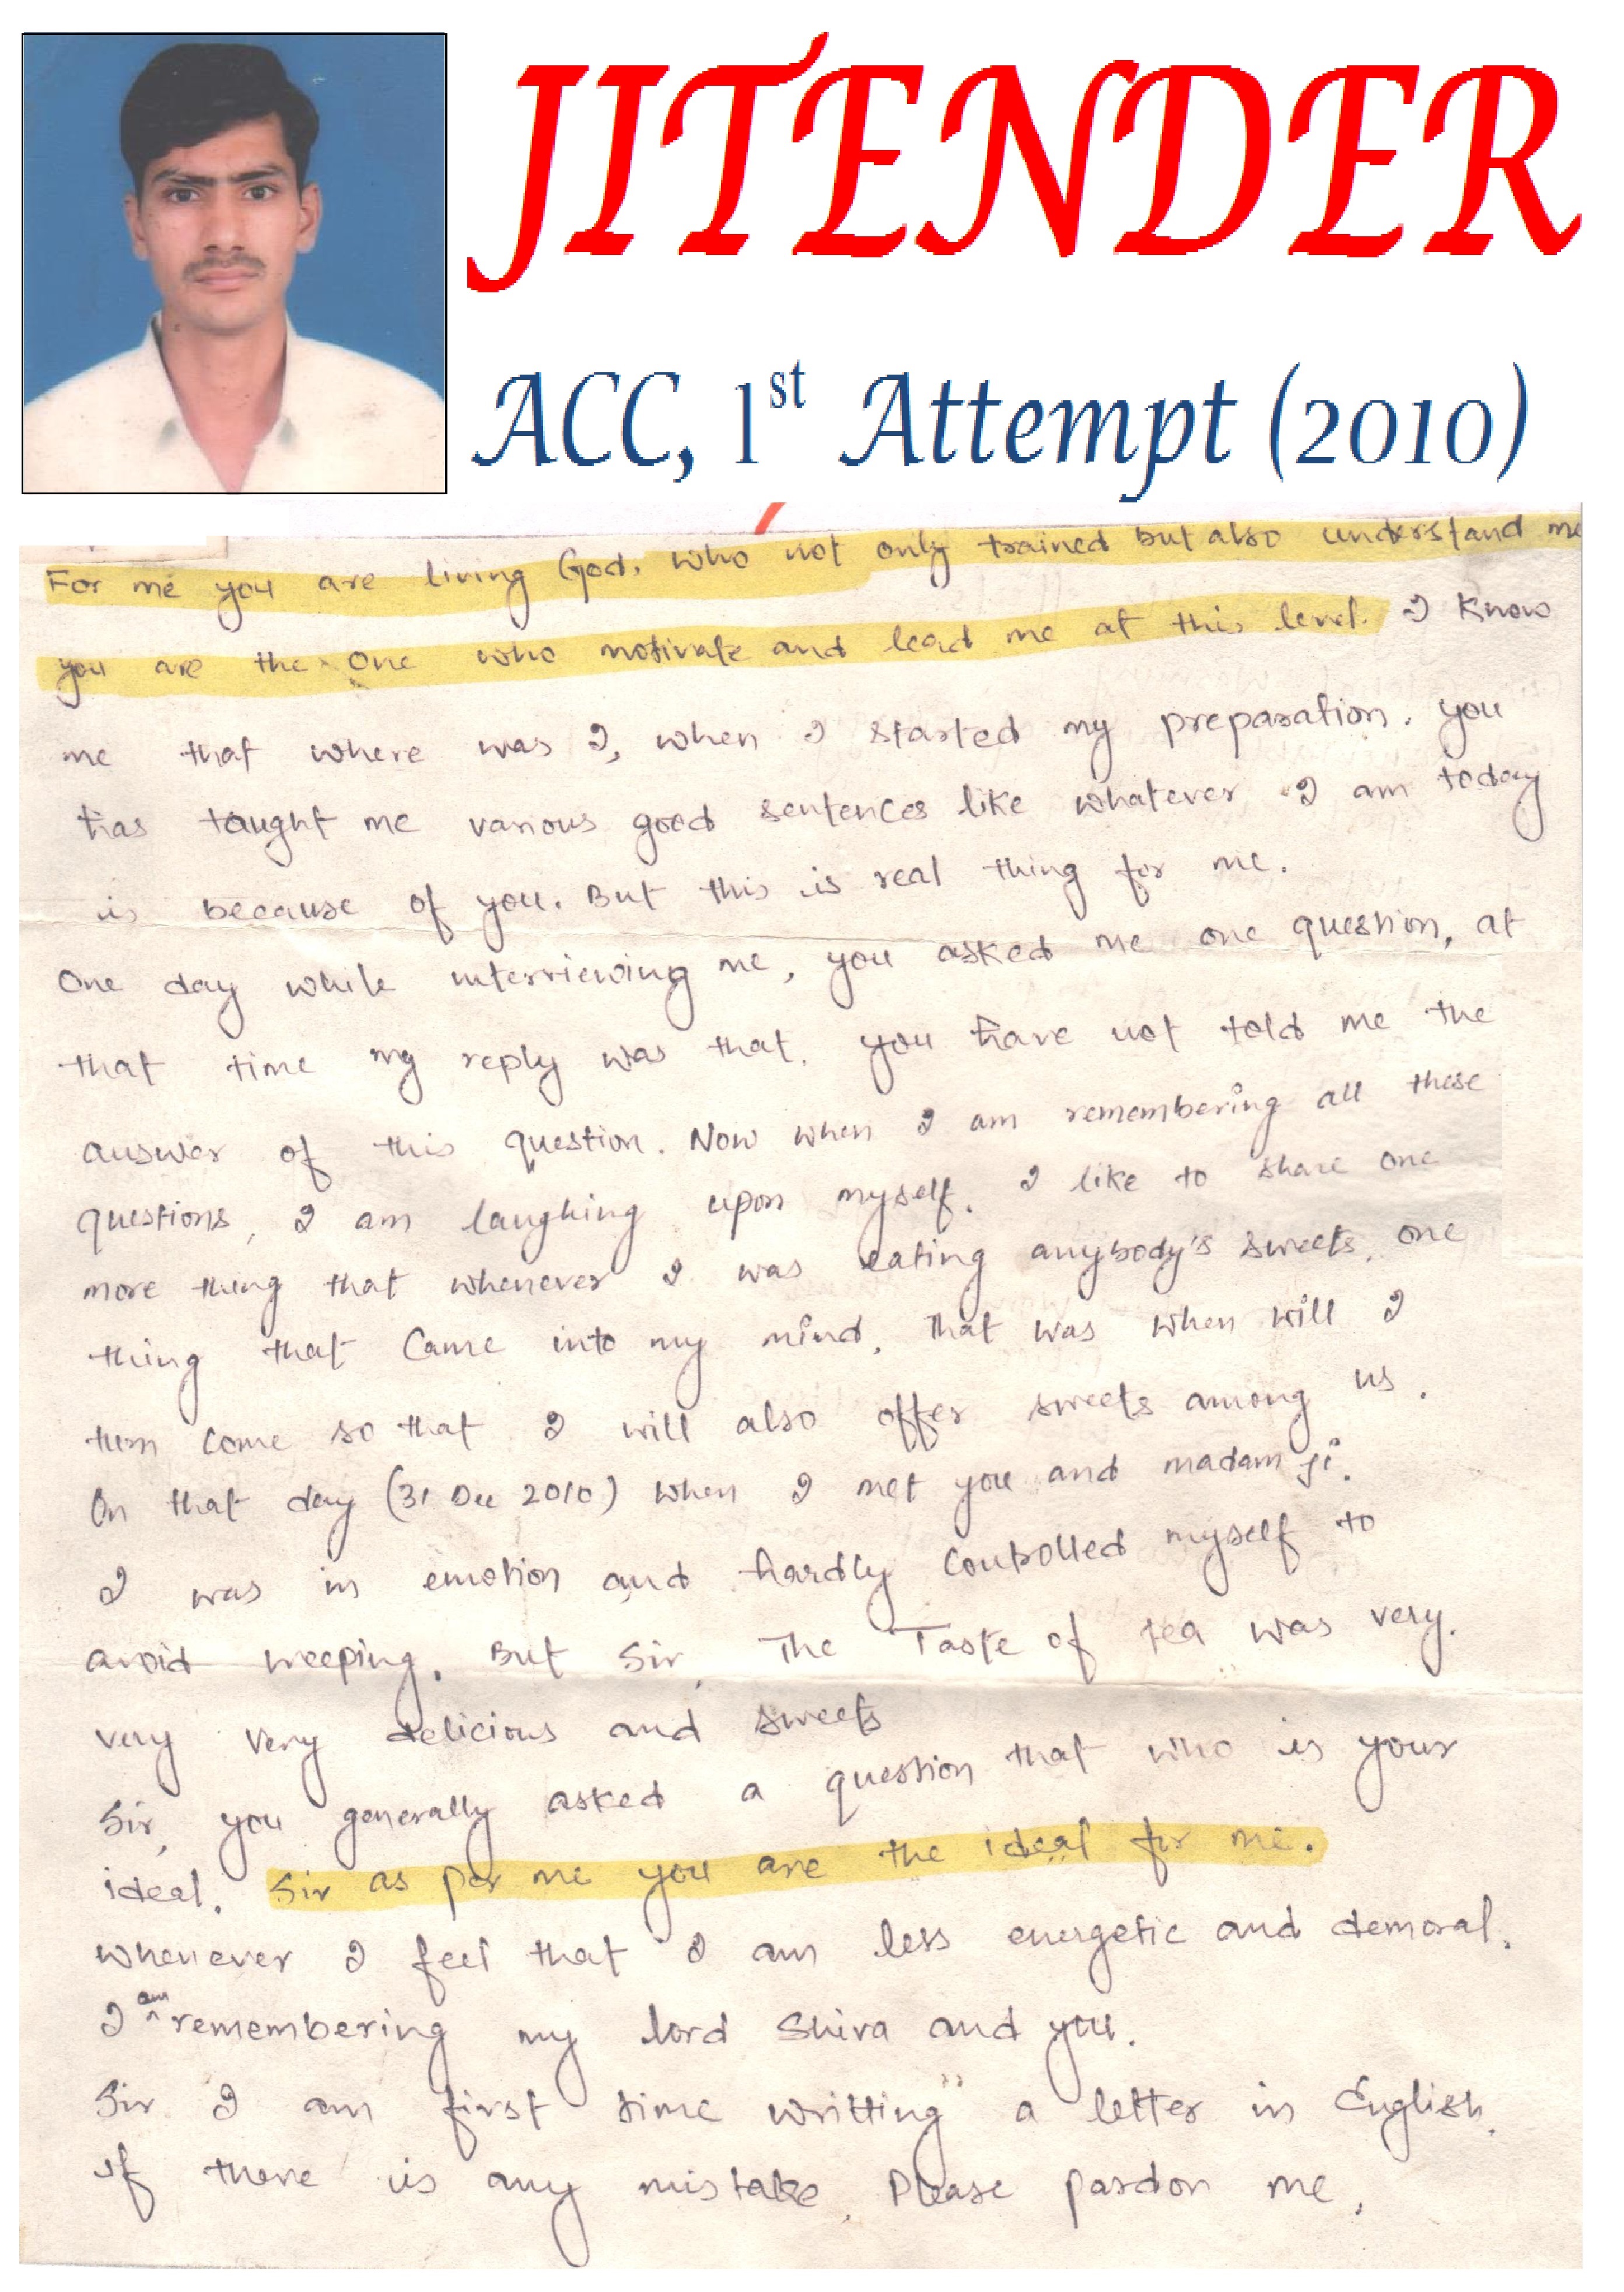 JITENDER
ACC, 1st Attempt (2010)
For me you are living God. who not only trained but also understand me
you are the one who motivate and lead me at this level. I know
me that where was I, when I started my preparation. you
has taught me various good sentences like whatever I am today
is because of you. But this is real thing for me.
One day while interviewing me, you asked me one question, at
that time my reply was that. you have not told me the
answer of this question. Now when I am remembering all these
questions, I am laughing upon myself. I like to share one
more thing that whenever I was eating anybody's sweets, one
thing that came into my mind. That was when will I
turn come so that I will also offer sweets among us.
On that day (31 Dec 2010) when I met you and madam ji.
I was in emotion and hardly controlled myself to
avoid weeping. But Sir, The Taste of tea was very.
very very delicious and sweets
Sir, you generally asked a question that who is your
ideal. Sir as per me you are the ideal for me.
whenever I feel that I am less energetic and demoral.
I am remembering my lord Shiva and you.
Sir I am first time writting a letter in English.
If there is any mistake. Please pardon me.